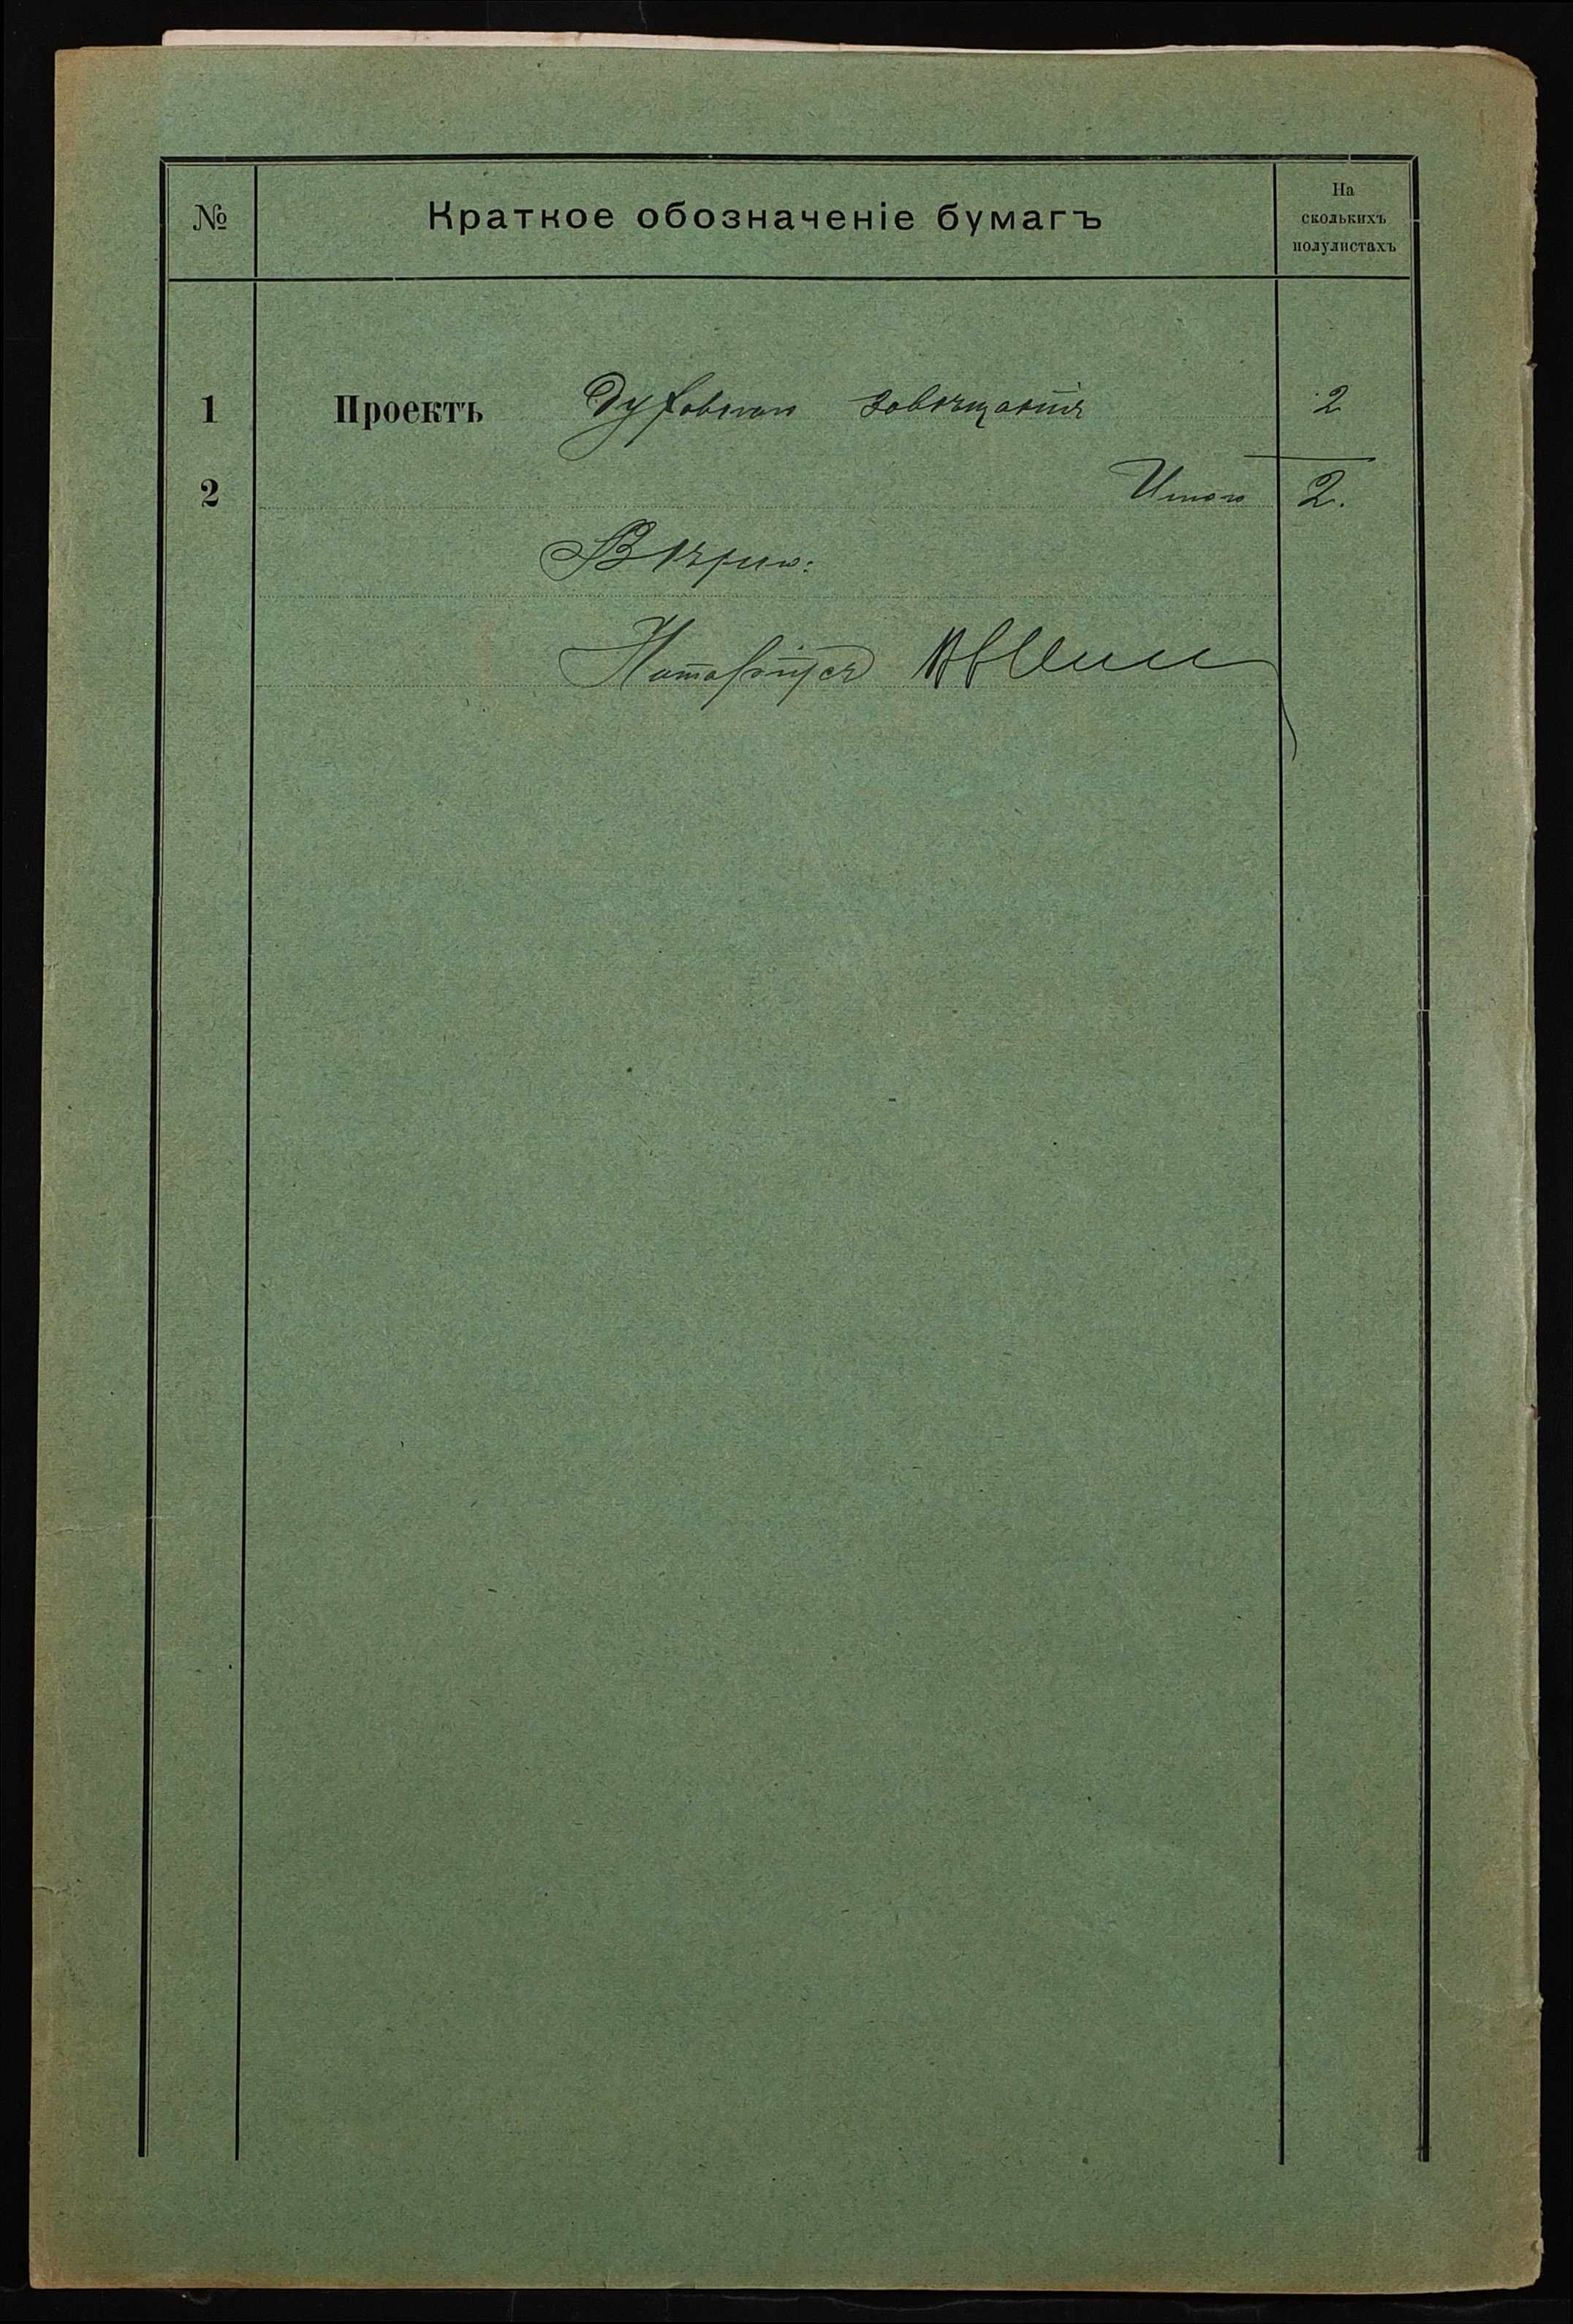 № Краткое обозначеніе бумагъ На
сколькихъ
полулистахъ
1 Проектъ Духовнаго завѣщанія 2
2 Итого 2.
Вѣрно:
Нотаріусъ